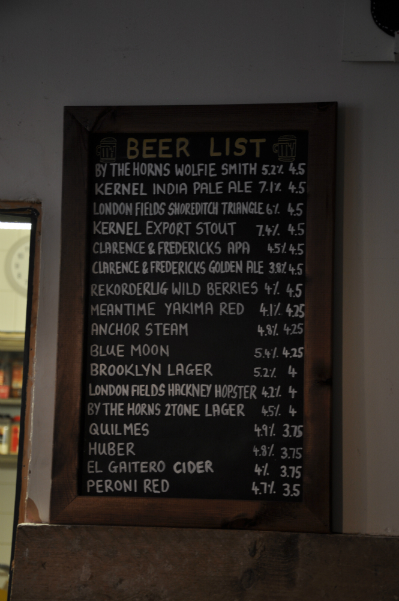 BEER LIST
BY THE HORNS WOLFIE SMITH 5.2% 4.5
KERNEL INDIA PALE ALE 7.1% 4.5
LONDON FIELDS SHOREDITCH TRIANGLE 6% 4.5
KERNEL EXPORT STOUT 7.4% 4.5
CLARENCE & FREDERICKS APA 4.5% 4.5
CLARENCE & FREDERICKS GOLDEN ALE 3.8% 4.5
REKORDERLIG WILD BERRIES 4% 4.5
MEANTIME YAKIMA RED 4.1% 4.25
ANCHOR STEAM 4.8% 4.25
BLUE MOON 5.4% 4.25
BROOKLYN LAGER 5.2% 4
LONDON FIELDS HACKNEY HOPSTER 4.2% 4
BY THE HORNS 2TONE LAGER 4.5% 4
QUILMES 4.9% 3.75
HUBER 4.8% 3.75
EL GAITERO CIDER 4% 3.75
PERONI RED 4.7% 3.5